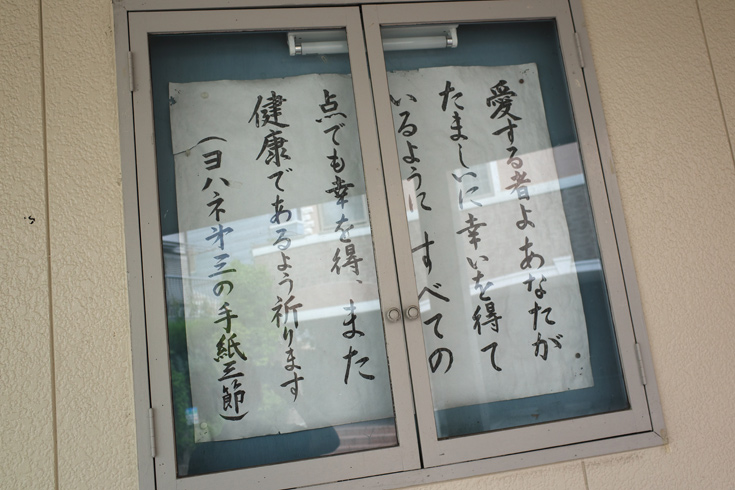 愛する者よあなたが
たましいに幸いを得て
いるように すべての
点でも幸を得、また
健康であるよう祈ります
(ヨハネ第三の手紙三節)